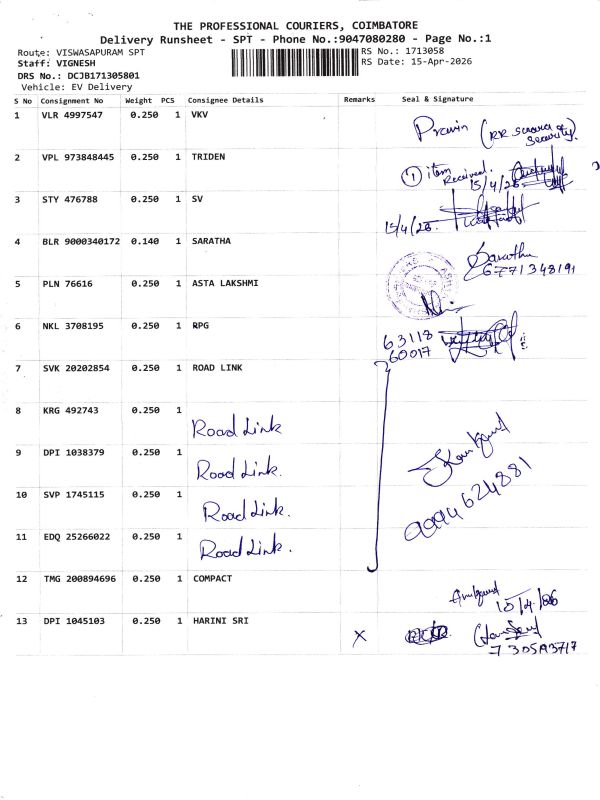 THE PROFESSIONAL COURIERS, COIMBATORE
Delivery Runsheet - SPT - Phone No.:9047080280 - Page No.:1
Route: VISWASAPURAM SPT
RS No.: 1713058
Staff: VIGNESH
RS Date: 15-Apr-2026
DRS No.: DCJB171305801
Vehicle: EV Delivery
S No Consignment No Weight PCS Consignee Details Remarks Seal & Signature
1 VLR 4997547 0.250 1 VKV
Pravin (RR
Security.
2 VPL 973848445 0.250 1 TRIDEN
① item
Received.
15/4/26
3 STY 476788 0.250 1 SV
15/4/26.
4 BLR 9000340172 0.140 1 SARATHA
Saratha
6771348191
5 PLN 76616 0.250 1 ASTA LAKSHMI
6 NKL 3708195 0.250 1 RPG
63118
60017
7 SVK 20202854 0.250 1 ROAD LINK
8 KRG 492743 0.250 1
Road Link
9 DPI 1038379 0.250 1
Road Link.
10 SVP 1745115 0.250 1
Road Link.
11 EDQ 25266022 0.250 1
Road Link.
9994624881
12 TMG 200894696 0.250 1 COMPACT
13 DPI 1045103 0.250 1 HARINI SRI
X